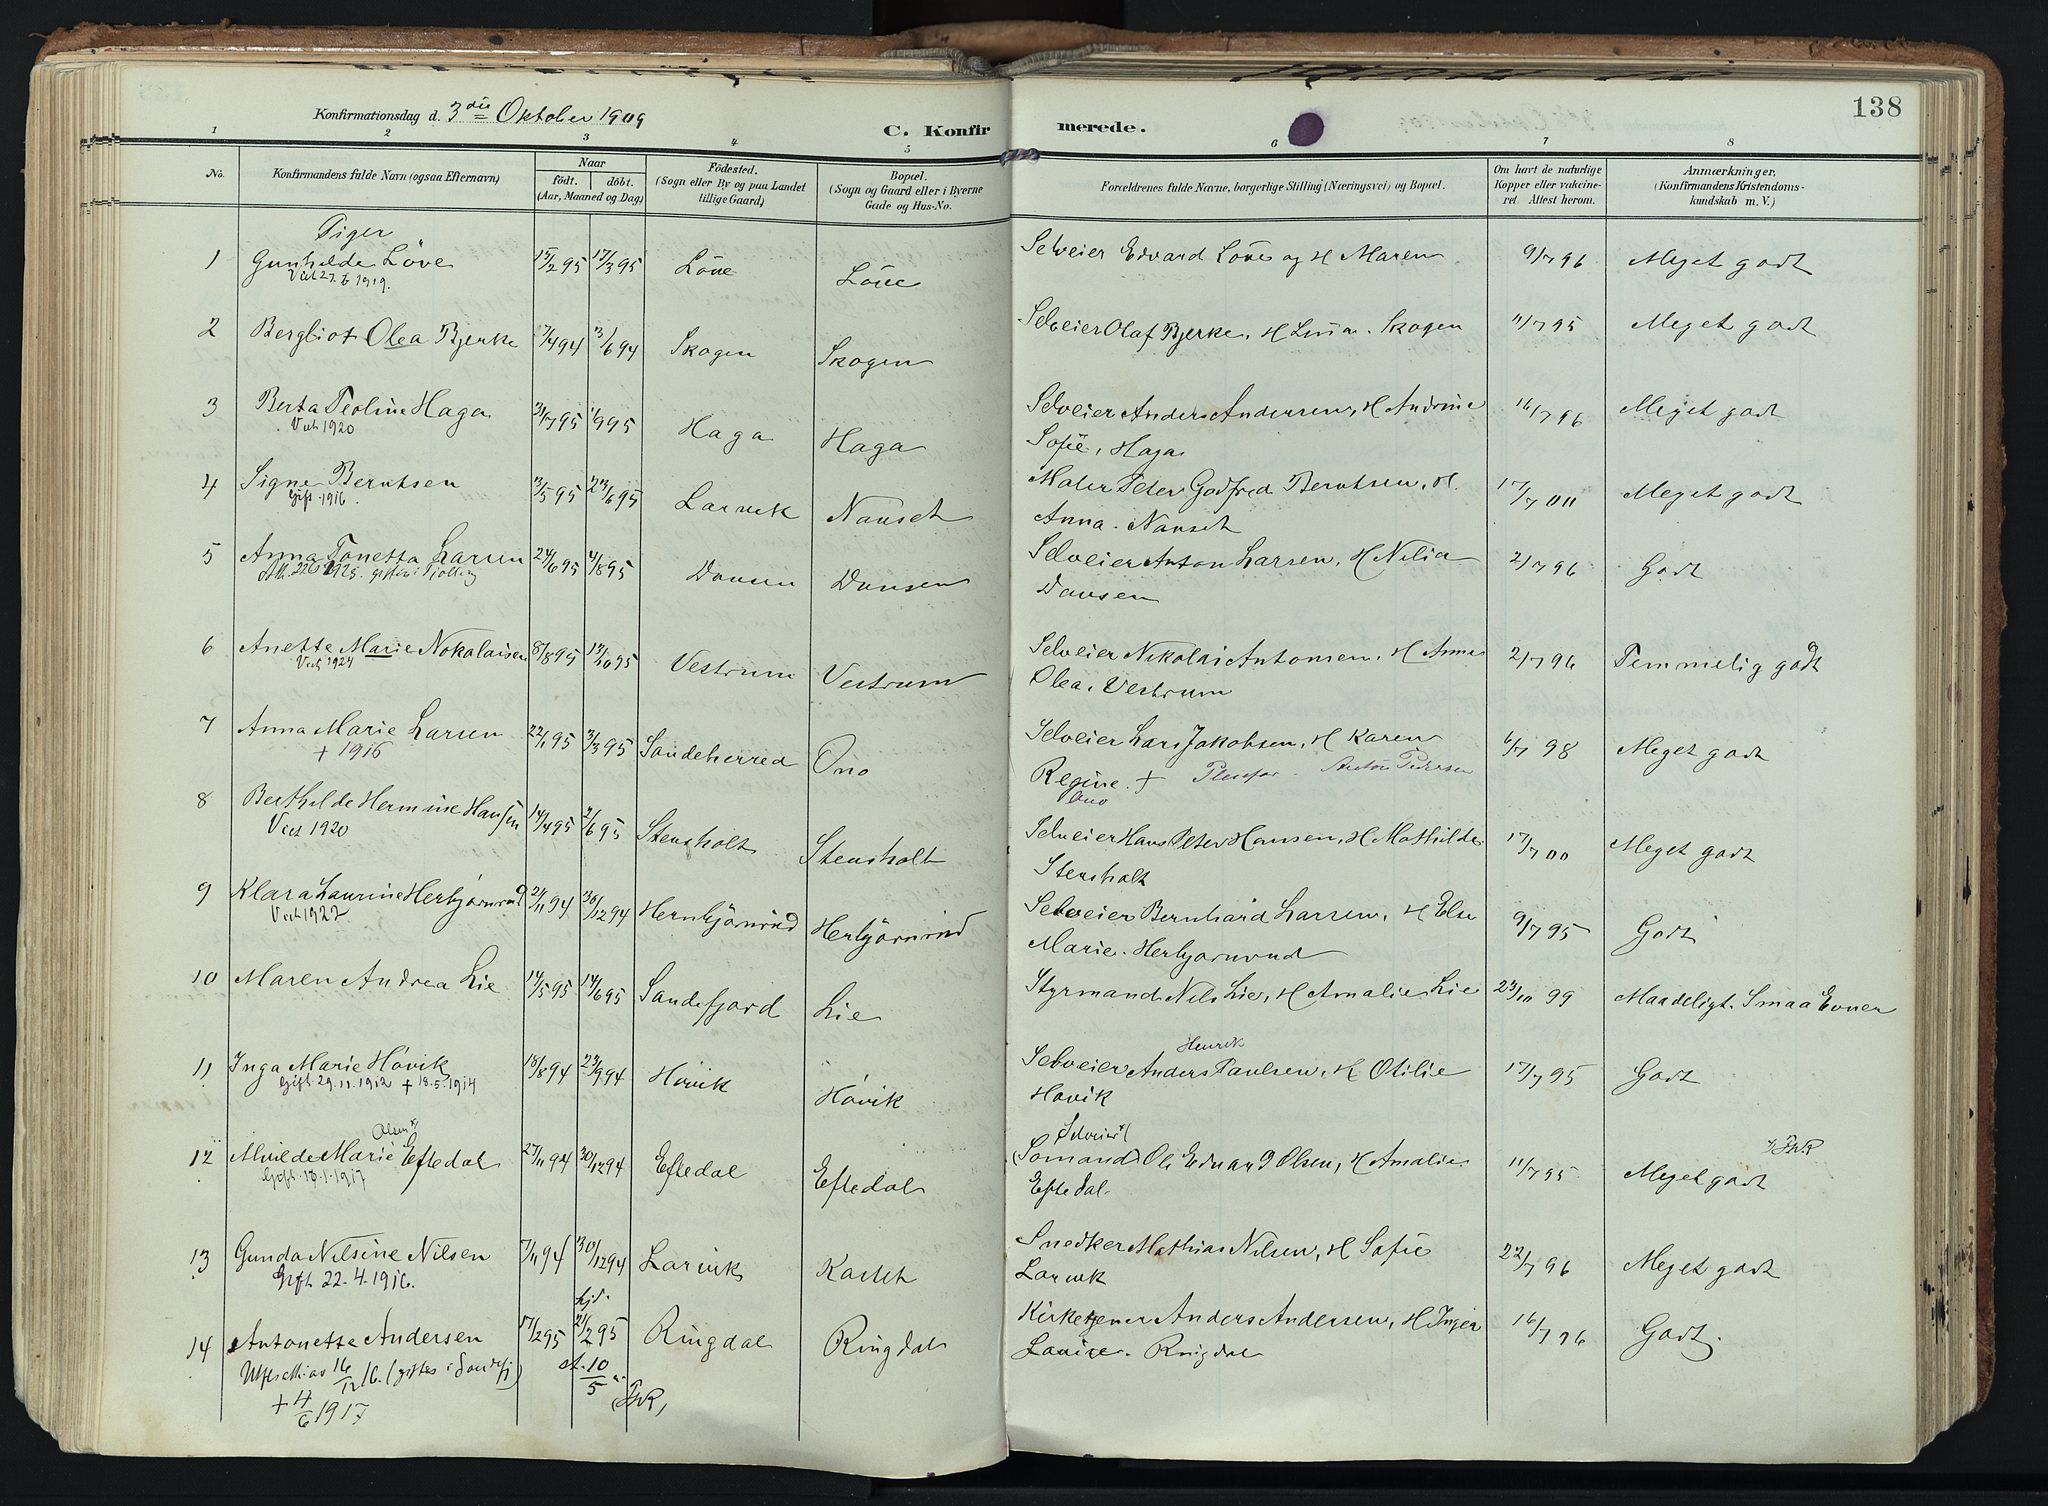 138
Konfirmationsdag d. 3die Oktober 1909
C. Konfirmerede.
1 2 3 4 5 6 7 8
No.
Konfirmandens fulde Navn (ogsaa Efternavn).
Naar
født. døbt.
(Aar, Maaned og Dag)
Fødested.
(Sogn eller By og paa Landet
tillige Gaard)
Bopæl.
(Sogn og Gaard eller i Byerne
Gade og Hus-No.
Forældrenes fulde Navne, borgerlige Stilling (Næringsvei) og Bopæl.
Om havt de naturlige
Kopper eller vakcine-
ret Attest herom.
Anmærkninger,
(Konfirmandens Kristendoms-
kundskab m. V.)
Piger
1 Gunhilde Löve 15/2 95 17/3 95 Löve Löve Selveier Edvard Löve og H Maren 9/7 96 Meget godt
Viet 27.6 1919.
2 Bergliot Olea Bjerke 7/4 94 3/6 94 Skogen Skogen Selveier Olaf Bjerke, H Lina. Skogen 11/7 95 Meget godt
3 Berta Teoline Haga 31/7 95 1/9 95 Haga Haga Selveier Anders Andersen, H Andrine 16/7 96 Meget godt
Viet 1920
Sofie, Haga
4 Signe Berntsen 3/5 95 23/6 95 Larvik Nanset Maler Peter Godfred Berntsen, H. 17/7 00 Meget godt
Gift 1916.
Anna. Nanset
5 Anna Tonetta Larsen 24/6 95 4/8 95 Dansen Dansen Selveier Anton Larsen, H Nilia 2/7 96 Godt
1925. giftes i Tjölling
Dansen
6 Anette Marie Nokolaisen 8/8 95 13/10 95 Vestrum Vestrum Selveier Nikolai Antonsen, H Anna 2/7 96 Temmelig godt
Viet 1924
Olea, Vestrum
7 Anna Marie Larsen 22/1 95 3/3 95 Sandeherred Ono Selveier Lars Jakobsen, H Karen 6/7 98 Meget godt
+ 1916
Regine. + Pleiefar. Anton Pedersen
Ono
8 Berthilde Hermine Hansen 14/4 95 2/6 95 Stensholt Stensholt Selveier Hans Peter Hansen, H Mathilde 17/7 00 Meget godt
Viet 1920
Stensholt
9 Klara Laurine Herbjørnrud 24/11 94 30/12 94 Hernbjörnrud Herbjörnrud Selveier Bernhard Larsen, H Else 9/7 95 Godt
Viet 1922
Marie. Herbjørnrud
10 Maren Andrea Lie 14/5 95 14/6 95 Sandefjord Lie Styrmand Nils Lie, H Amalie Lie 23/10 99 Maadeligt. Smaa Evner
11 Inga Marie Hóvik 18/8 94 23/9 94 Hóvik Hóvik Selveier Anders Paulsen, H Otilie 17/7 95 Godt
Henrik
Gift 29.11.1912 + 18.5.1914
Hovik
12 Alvilde Marie Eftedal 27/11 94 30/12 94 Eftedal Eftedal (Sømand) Ole Edvard Olsen, H Amalie 11/7 95 Meget godt
Olsen x)
Selveier x)
x) ThR
Gift 18.1.1917
Eftedal.
13 Gunda Nilsine Nilsen 7/11 94 30/12 94 Larvik Kastet Snedker Mathias Nilsen, H Sofie 22/7 96 Meget godt
Gift 22.4.1916.
Larvik
14 Antonette Andersen 17/2 95 hjd. 21/2 95 Ringdal Ringdal Kirketjener Anders Andersen, H Inger 16/7 96 Godt.
Louise. Ringdal
16/12 16. (giftes i Sandefj)
st. 10/5
(ThR)
+ 4/6 1917